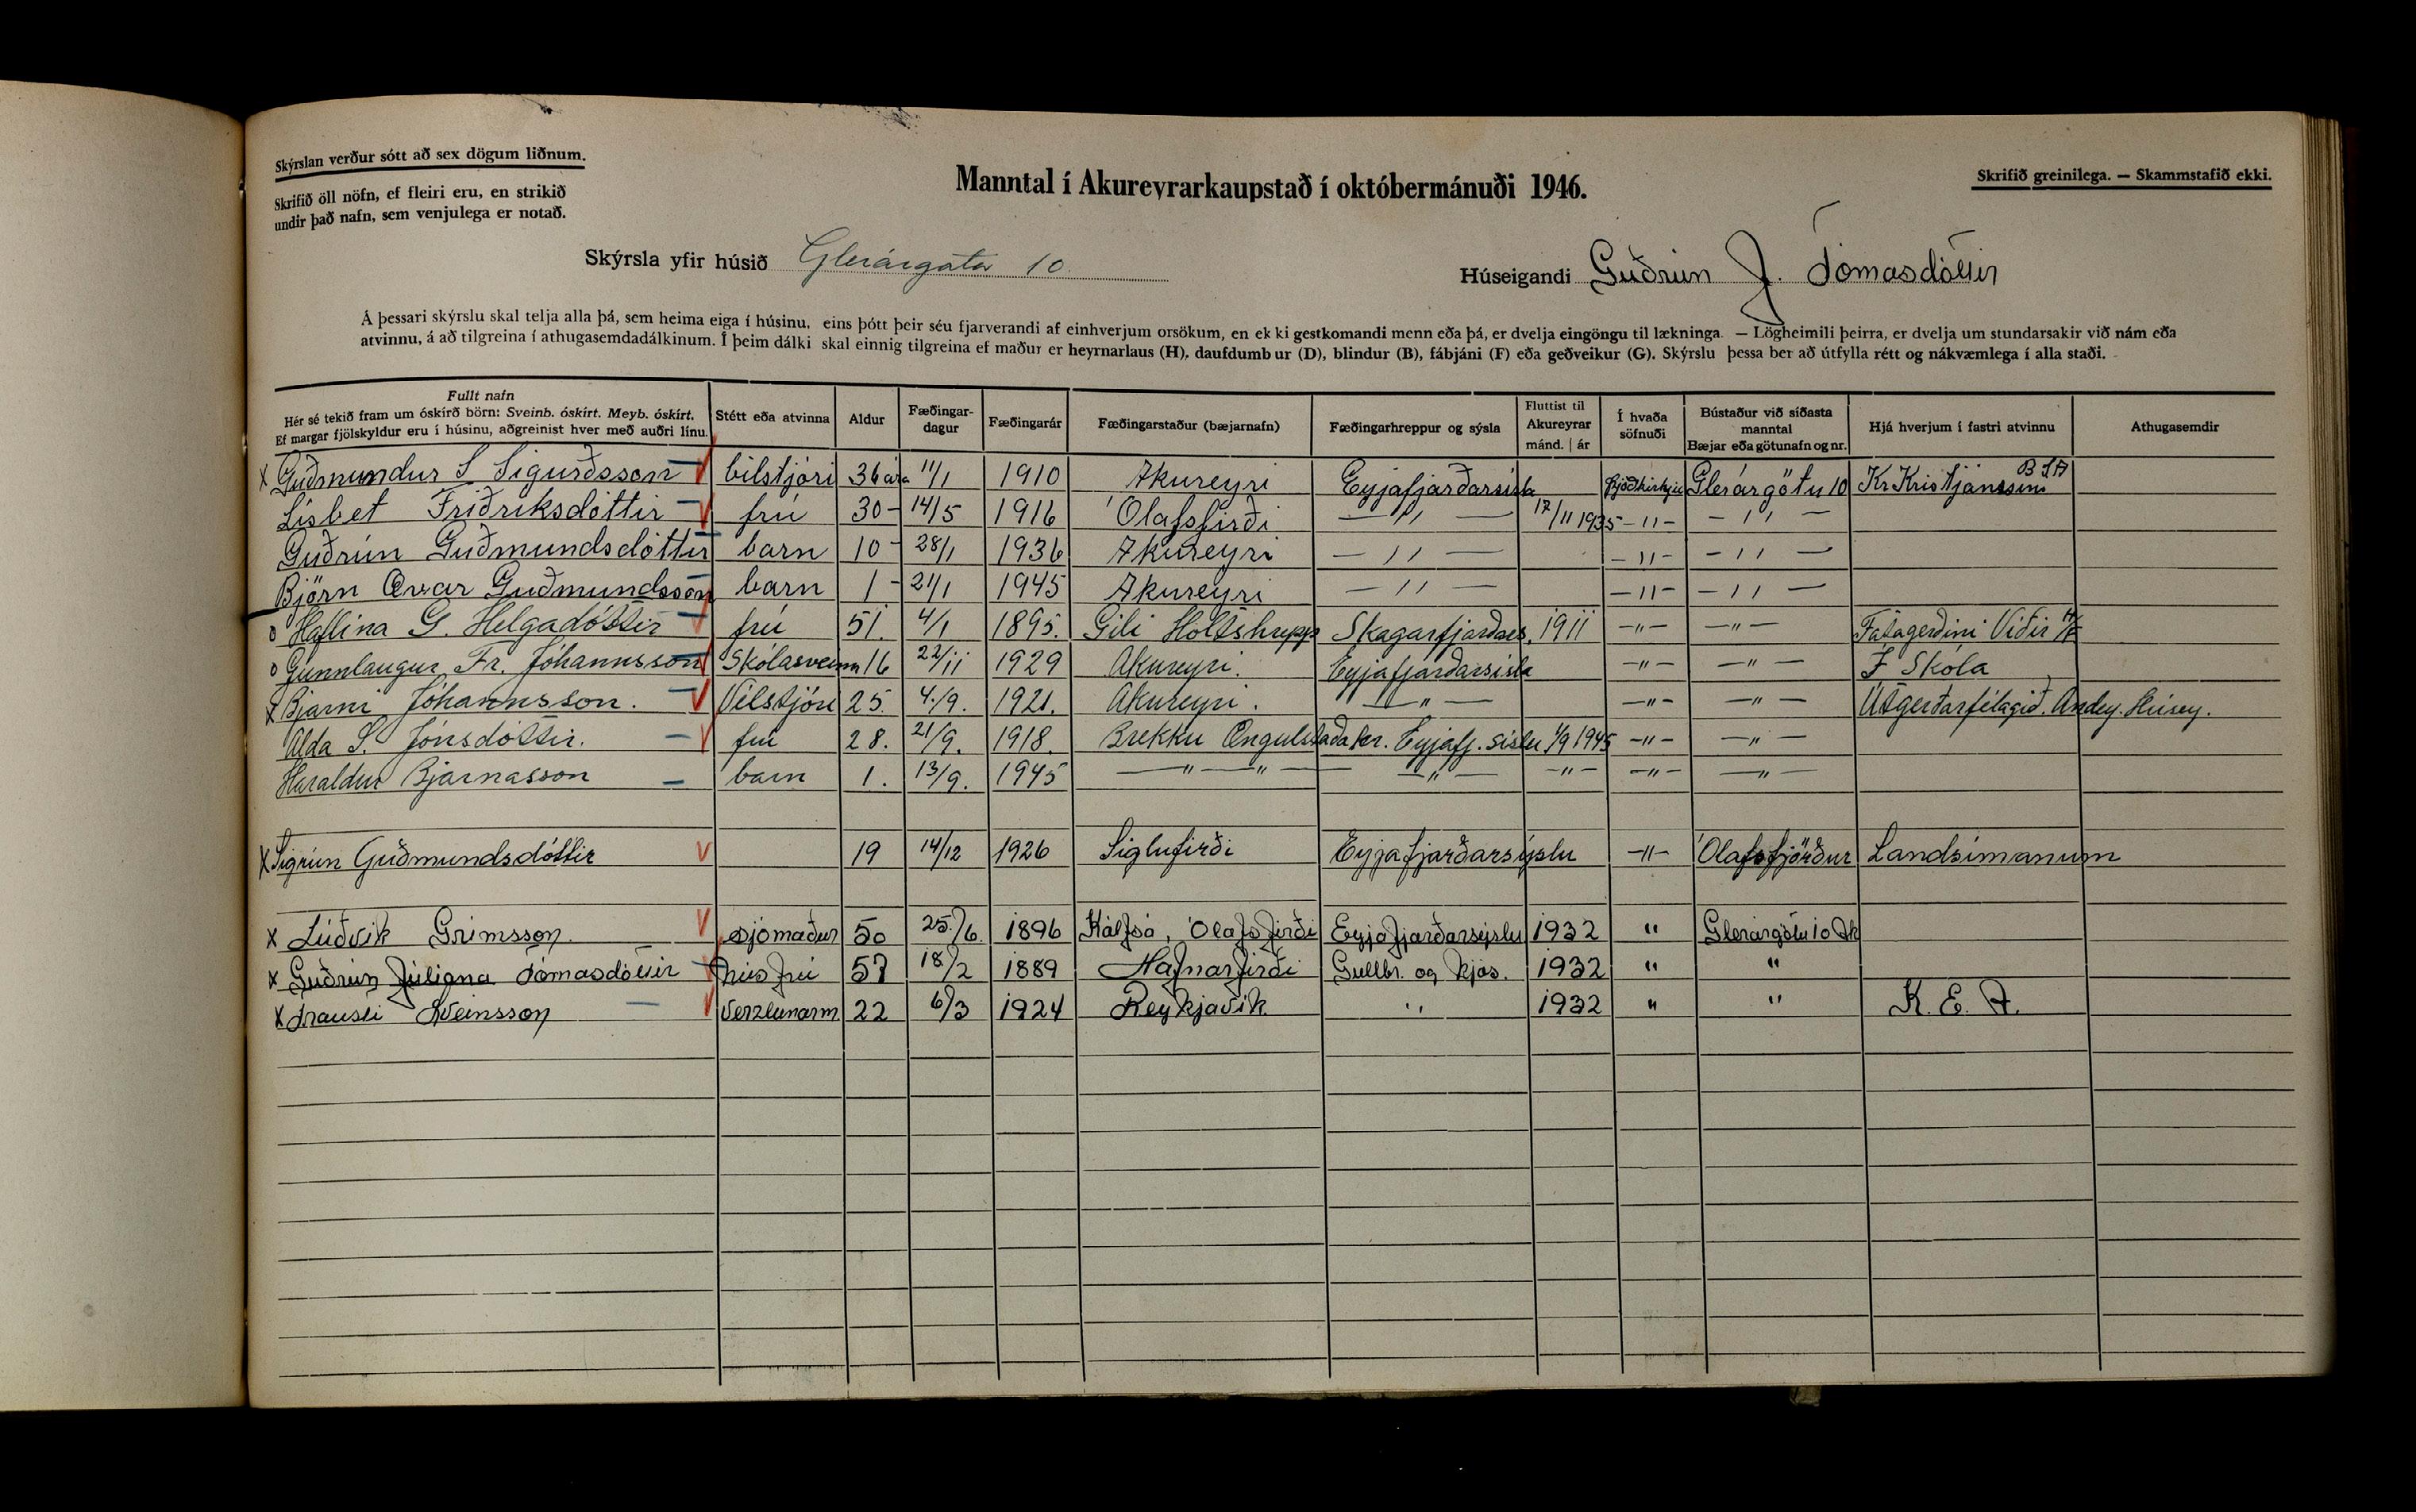 Skýrslan verður sótt að sex dögum liðnum.
Skrifið öll nöfn, ef fleiri eru, en strikið
undir það nafn, sem venjulega er notað.
Manntal í Akureyrarkaupstað í októbermánuði 1946.
Skrifið greinilega. — Skammstafið ekki.
Skýrsla yfir húsið Glerárgata 10
Húseigandi Guðrún J. Tómasdóttir
Á þessari skýrslu skal telja alla þá, sem heima eiga í húsinu, eins þótt þeir séu fjarverandi af einhverjum orsökum, en ekki gestkomandi menn eða þá, er dvelja eingöngu til lækninga. — Lögheimili þeirra, er dvelja um stundarsakir við nám eða
atvinnu, á að tilgreina í athugasemdadálkinum. Í þeim dálki skal einnig tilgreina ef maður er heyrnarlaus (H), daufdumbur (D), blindur (B), fábjáni (F) eða geðveikur (G). Skýrslu þessa ber að útfylla rétt og nákvæmlega í alla staði.
Fullt nafn
Hér sé tekið fram um óskírð börn: Sveinb. óskírt. Meyb. óskírt.
Ef margar fjölskyldur eru í húsinu, aðgreinist hver með auðri línu.
Stétt eða atvinna
Aldur
Fæðingar-
dagur
Fæðingarár
Fæðingarstaður (bæjarnafn)
Fæðingarhreppur og sýsla
Fluttist til
Akureyrar
mánd. | ár
Í hvaða
söfnuði
Bústaður við síðasta
manntal
Bæjar eða götunafn og nr.
Hjá hverjum í fastri atvinnu
Athugasemdir
x Guðmundur S Sigurðsson bílstjóri 36 ára 11/1 1910 Akureyri Eyjafjarðarsísla þjóðkirkju Glerárgötu 10 Kr Kristjánssini B S A
Lísbet Friðriksdóttir frú 30 - 14/5 1916 Ólafsfirði — " — 17/11 1935 - " - - " -
Guðrún Guðmundsdóttir barn 10 - 28/1 1936 Akureyri — " — - " - - " -
Björn Ævar Guðmundsson barn 1 - 21/1 1945 Akureyri — " — - " - - " -
o Haflína G. Helgadóttir frú 51. 4/1 1895. Gili Holtshrepp Skagafjarðars. 1911 - " - - " - Fatagerðini Víðir H/F
o Gunnlaugur Fr. Jóhannsson Skólasveinn 16 22/11 1929 Akureyri. Eyjafjarðarsísla - " - - " - Í Skóla
x Bjarni Jóhannsson. Vélstjóri 25. 4./9. 1921. Akureyri. — " — - " - - " - Útgerðarfélagið. Andey. Hrísey.
Alda S. Jónsdóttir. frú 28. 21/9. 1918. Brekku Öngulstaðahr. Eyjafj. síslu 1/9 1945 - " - - " -
Haraldur Bjarnasson barn 1. 13/9. 1945 — " — " — — " — - " - - " - - " -
x Sigrún Guðmundsdóttir 19 14/12 1926 Siglufirði Eyjafjarðarsýslu - " - Ólafsfjörður Landsímanum
x Lúðvík Grímsson. sjómaður 50 25./6. 1896 Kálfsá, Ólafsfirði Eyjafjarðarsýslu 1932 " Glerárgötu 10 Ak
x Guðrún Júlíana Tómasdóttir húsfrú 57 18/2 1889 Hafnarfirði Gullbr. og Kjós. 1932 " "
x Trausti Sveinsson Verzlunarm. 22 6/3 1924 Reykjavík " 1932 " " K. E. A.